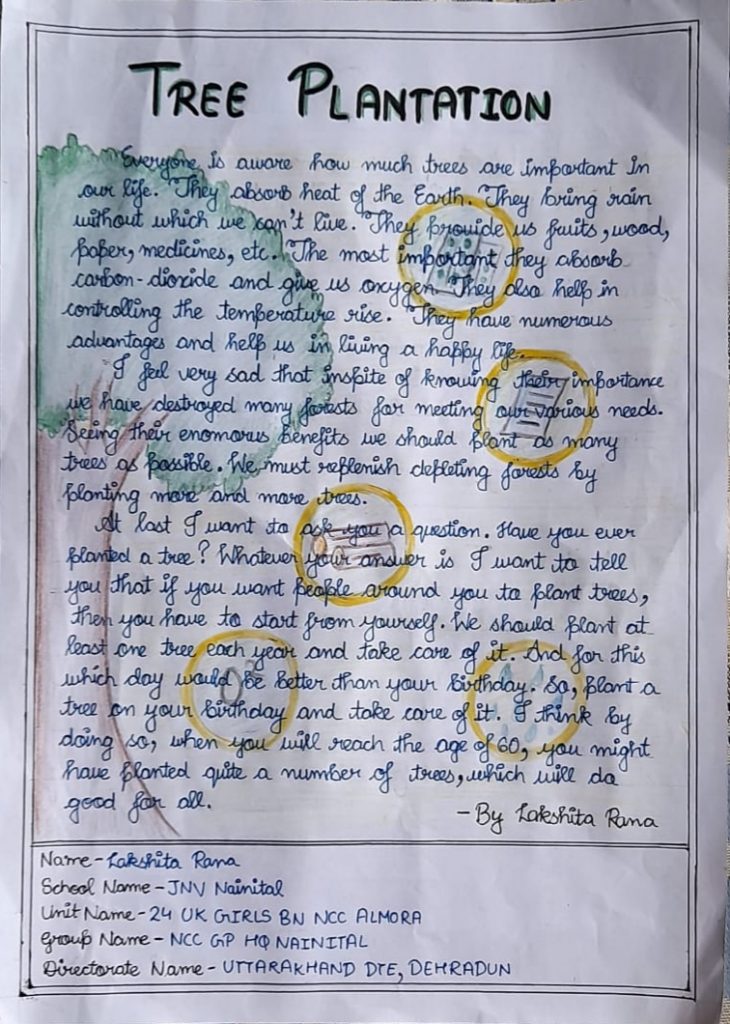 TREE PLANTATION
Everyone is aware how much trees are important in
our life. They absorb heat of the Earth. They bring rain
without which we can't live. They provide us fruits, wood,
paper, medicines, etc. The most important they absorb
carbon-dioxide and give us oxygen. They also help in
controlling the temperature rise. They have numerous
advantages and help us in living a happy life.
I feel very sad that inspite of knowing their importance
we have destroyed many forests for meeting our various needs.
Seeing their enomorus benefits we should plant as many
trees as possible. We must replenish depleting forests by
planting more and more trees.
At last I want to ask you a question. Have you ever
planted a tree? Whatever your answer is I want to tell
you that if you want people around you to plant trees,
then you have to start from yourself. We should plant at
least one tree each year and take care of it. And for this
which day would be better than your birthday. So, plant a
tree on your birthday and take care of it. I think by
doing so, when you will reach the age of 60, you might
have planted quite a number of trees, which will do
good for all.
- By Lakshita Rana
Name - Lakshita Rana
School Name - JNV Nainital
Unit Name - 24 UK GIRLS BN NCC ALMORA
Group Name - NCC GP HQ NAINITAL
Directorate Name - UTTARAKHAND DTE, DEHRADUN